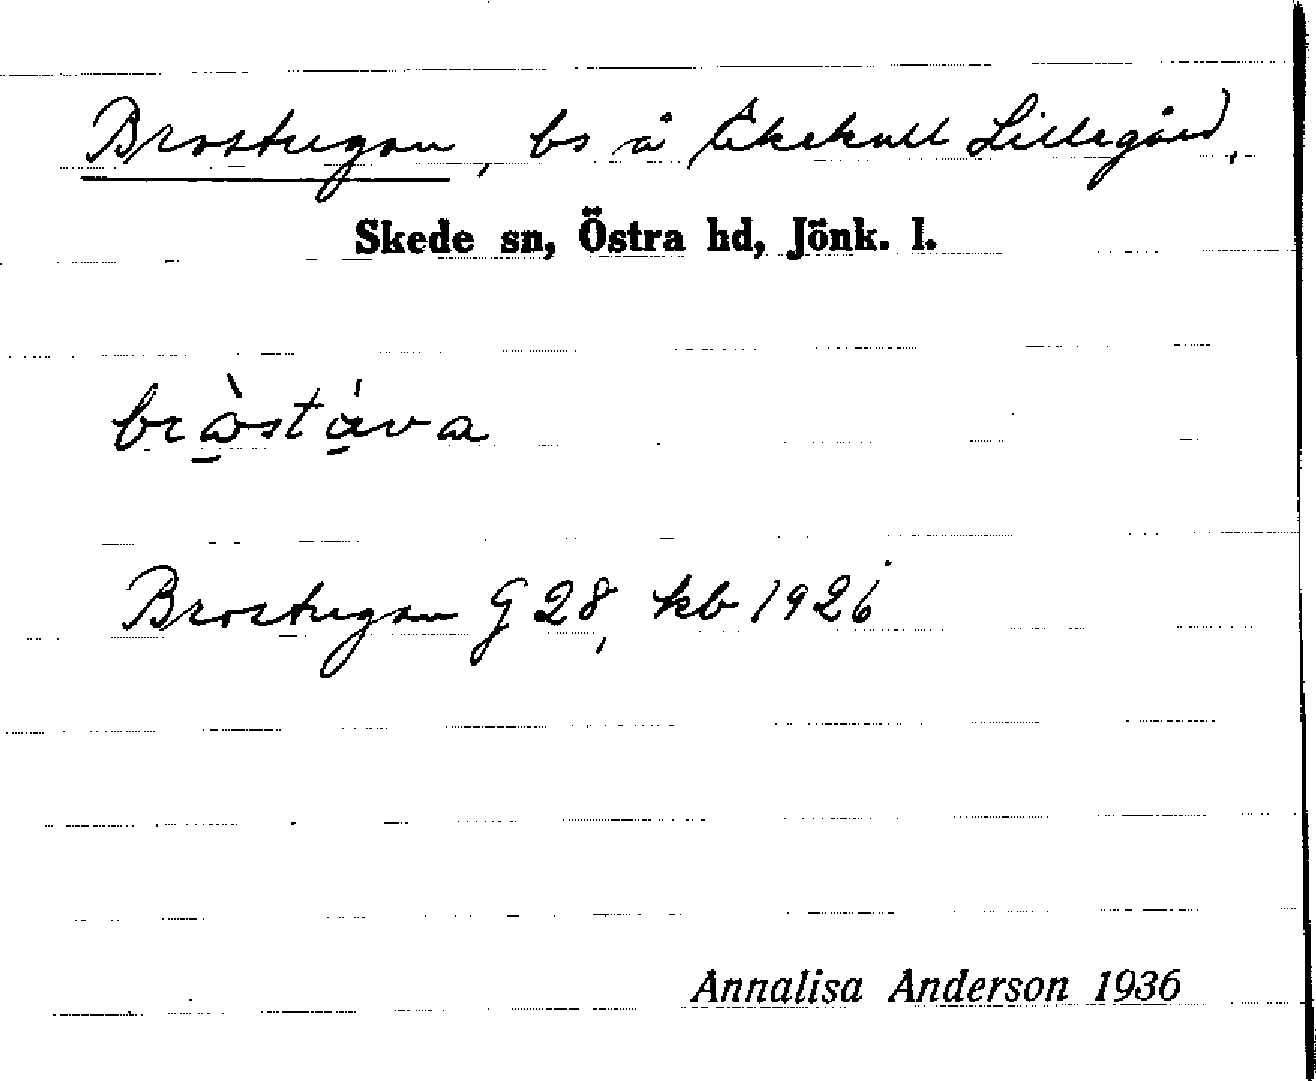 Brostugan, bs å Åkekull Lillegård,
Skede sn, Östra hd, Jönk. l.
Brostugan G 28, kb 1926
Annalisa Anderson 1936